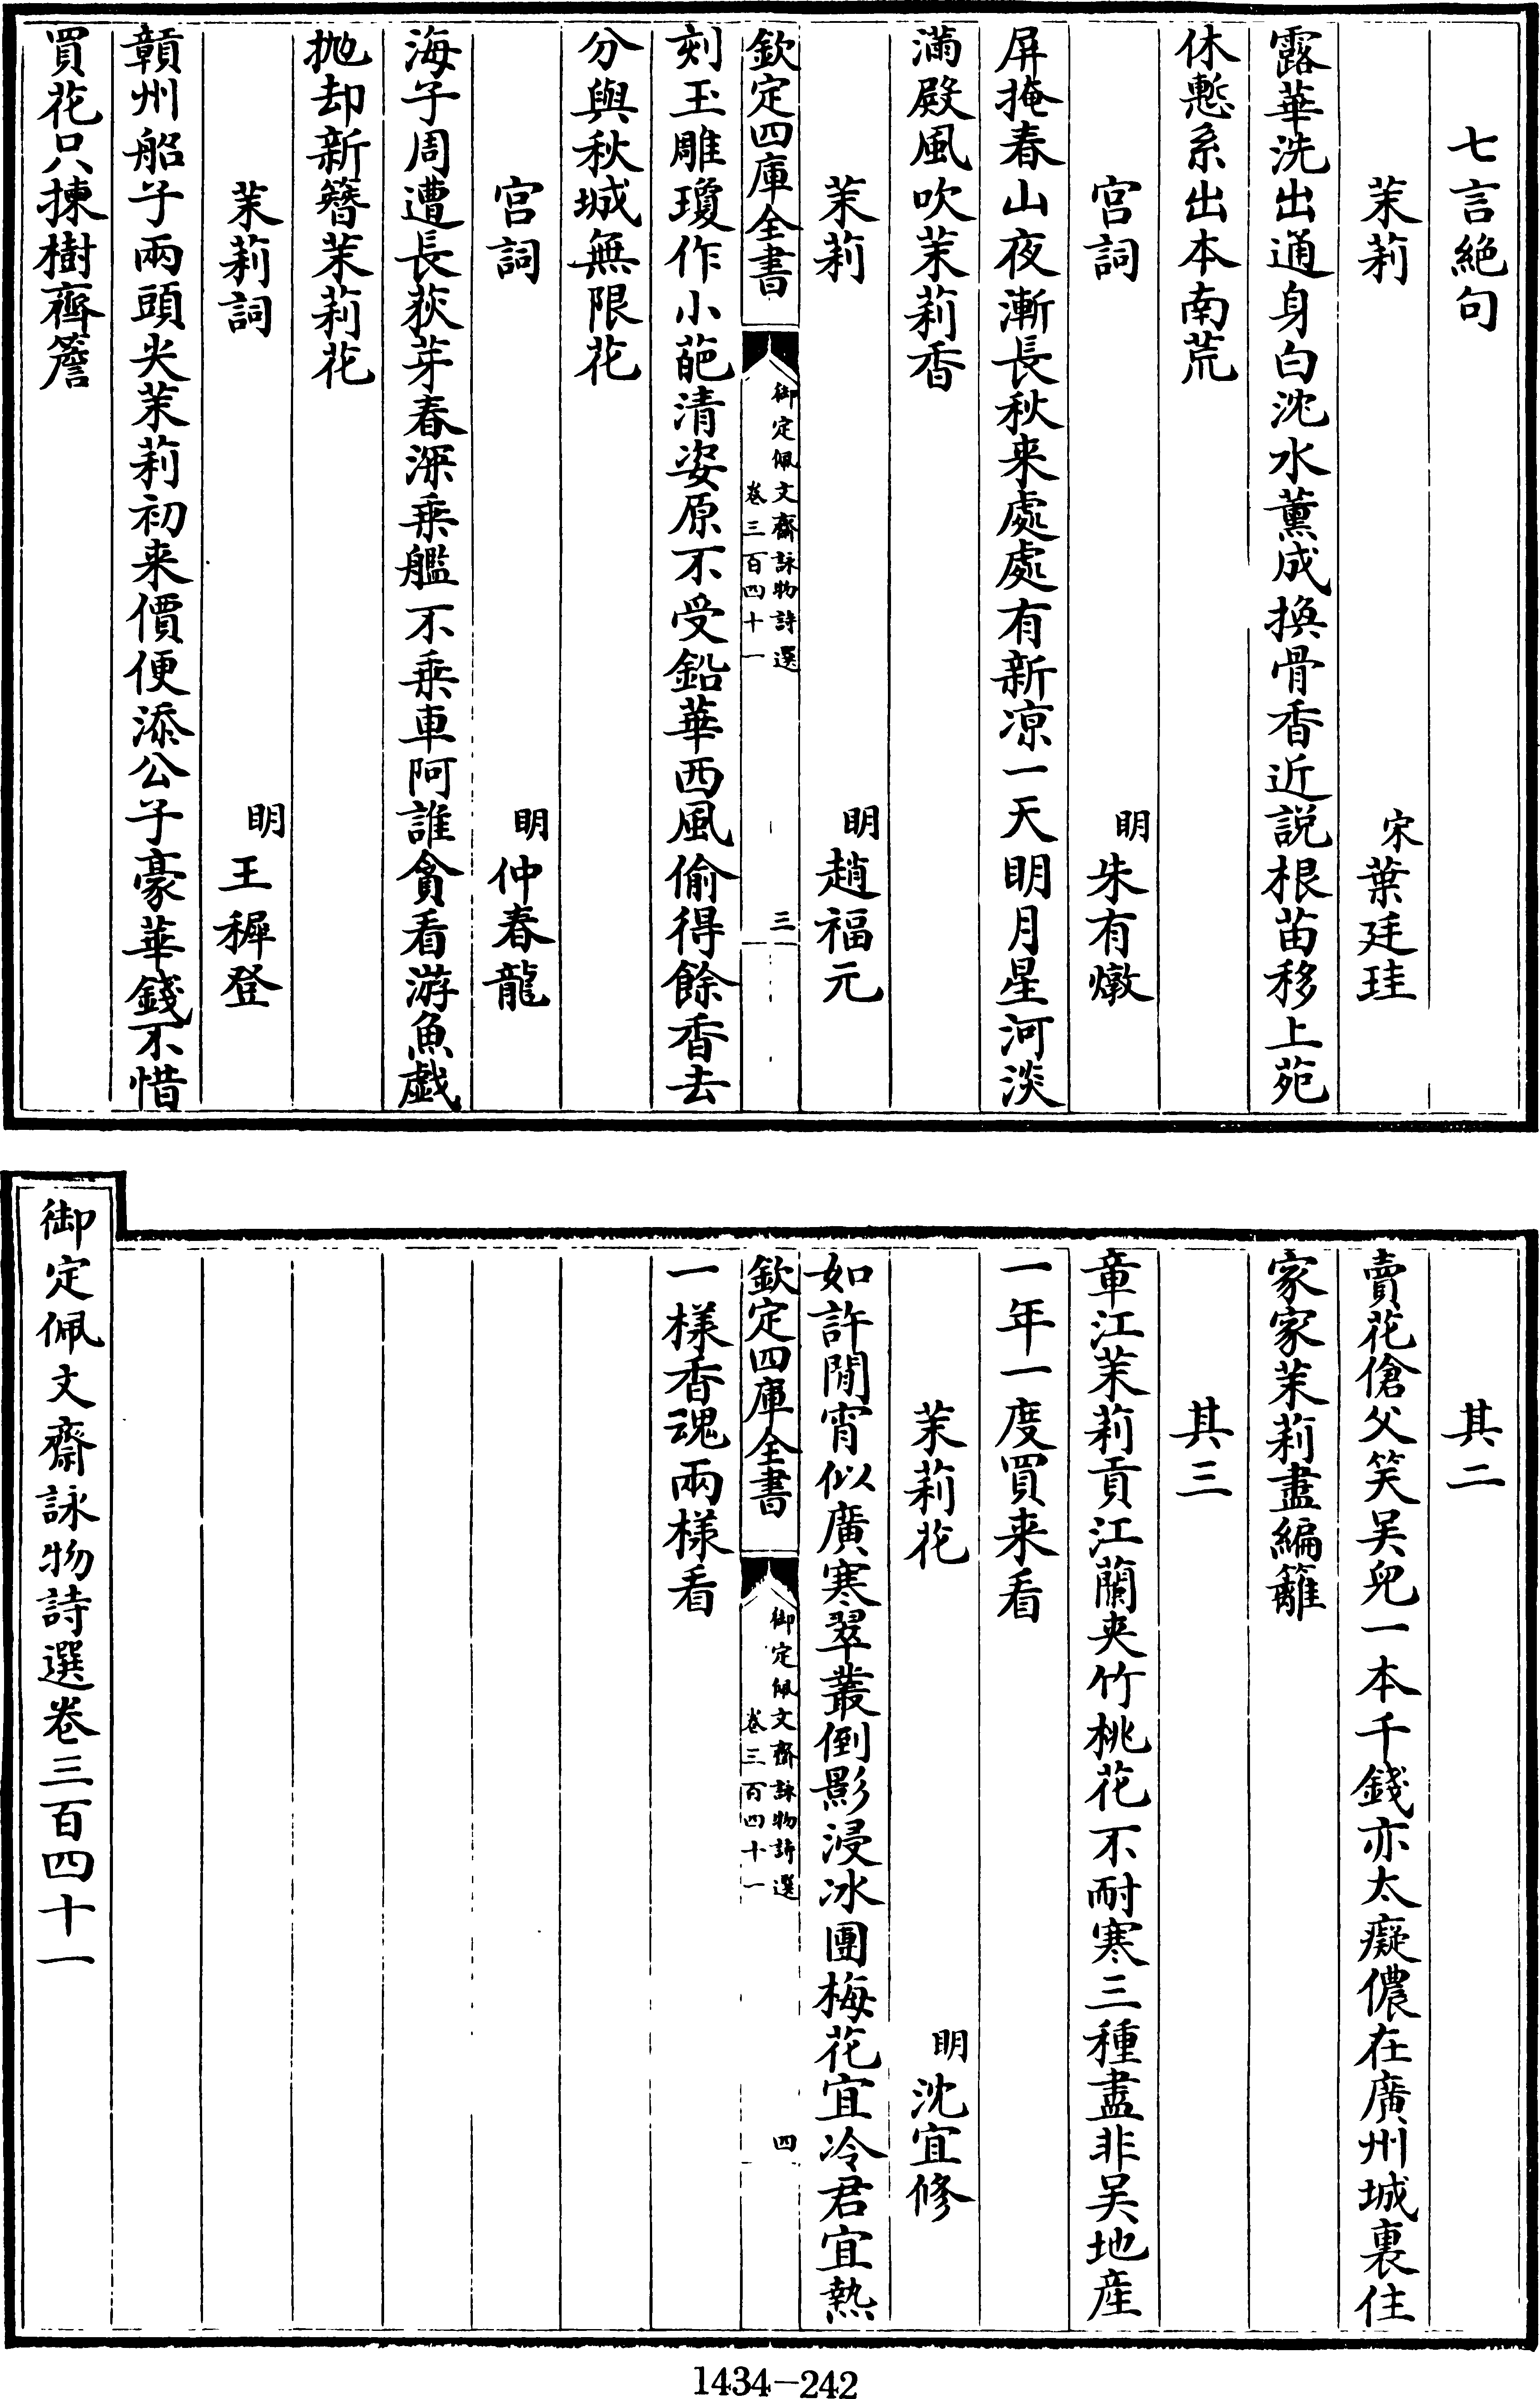 七言絶句
茉莉 宋葉廷珪
露華洗出通身白沈水薰成換骨香近説根苗移上苑
休慙系出本南荒
宮詞 明朱有燉
屏掩春山夜漸長秋来處處有新凉一天明月星河淡
滿殿風吹茉莉香
茉莉 明趙福元
欽定四庫全書
御定佩文齋詠物詩選
卷三百四十一
三
刻玉雕瓊作小葩清姿原不受鉛華西風偷得餘香去
分與秋城無限花
宮詞 明仲春龍
海子周遭長荻芽春深乗艦不乗車阿誰貪看游魚戯
抛却新簪茉莉花
茉莉詞 明王穉登
贛州船子兩頭尖茉莉初来價便添公子豪華錢不惜
買花只揀樹齊簷
其二
賣花傖父笑吴兒一本千錢亦太癡儂在廣州城裏住
家家茉莉盡編籬
其三
章江茉莉貢江蘭夾竹桃花不耐寒三種盡非吴地産
一年一度買来看
茉莉花 明沈宜修
如許閒宵似廣寒翠叢倒影浸冰團梅花宜冷君宜熱
欽定四庫全書
御定佩文齋詠物詩選
卷三百四十一
四
一様香魂兩様看
御定佩文齋詠物詩選卷三百四十一
1434-242